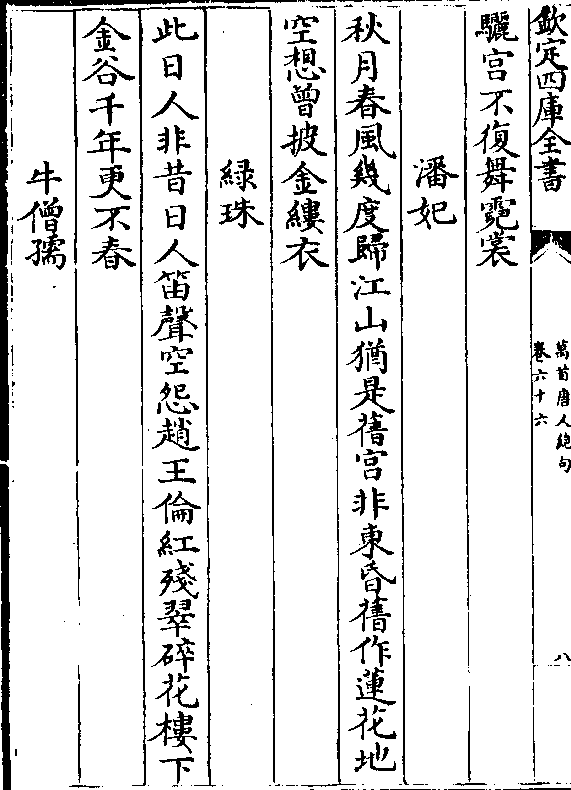 欽定四庫全書
萬首唐人絶句
卷六十六
八
驪宫不復舞霓裳
潘妃
秋月春風幾度歸江山猶是舊宫非東昏舊作蓮花地
空想曾披金縷衣
緑珠
此日人非昔日人笛聲空怨趙王倫紅殘翠碎花樓下
金谷千年更不春
牛僧孺